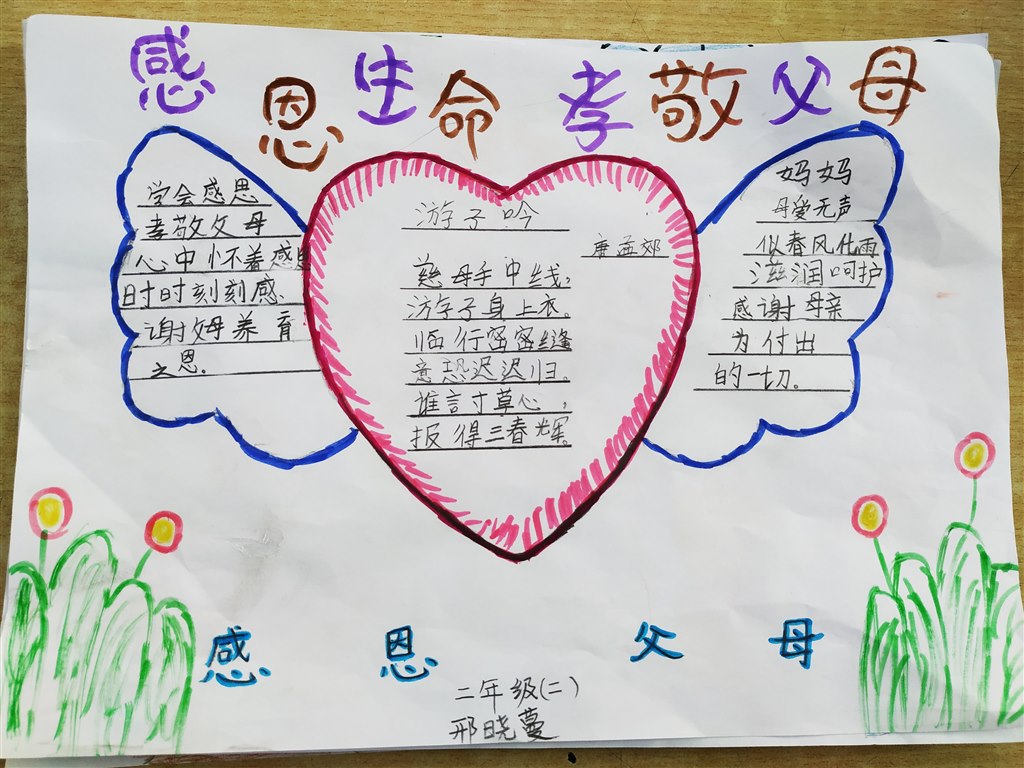 感恩生命 孝敬父母
学会感恩
孝敬父母
心中怀着感恩
时时刻刻感
谢母养育
之恩.
游子吟
唐孟郊
慈母手中线,
游子身上衣.
临行密密缝
意恐迟迟归.
谁言寸草心,
报得三春辉.
妈妈
母爱无声
似春风化雨
滋润呵护
感谢母亲
为付出
的一切.
感恩父母
二年级(二)
邢晓蔓